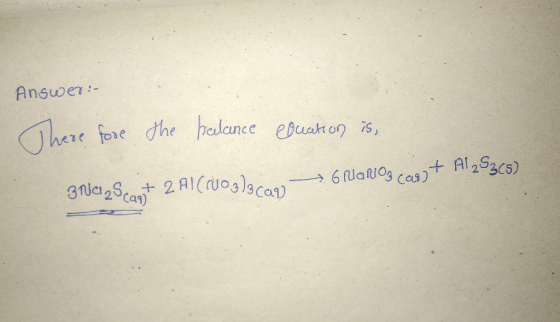 Answer:-
There fore the balance equation is,
3Na₂S(aq) + 2Al(NO₃)₃(aq) → 6NaNO₃(aq) + Al₂S₃(s)